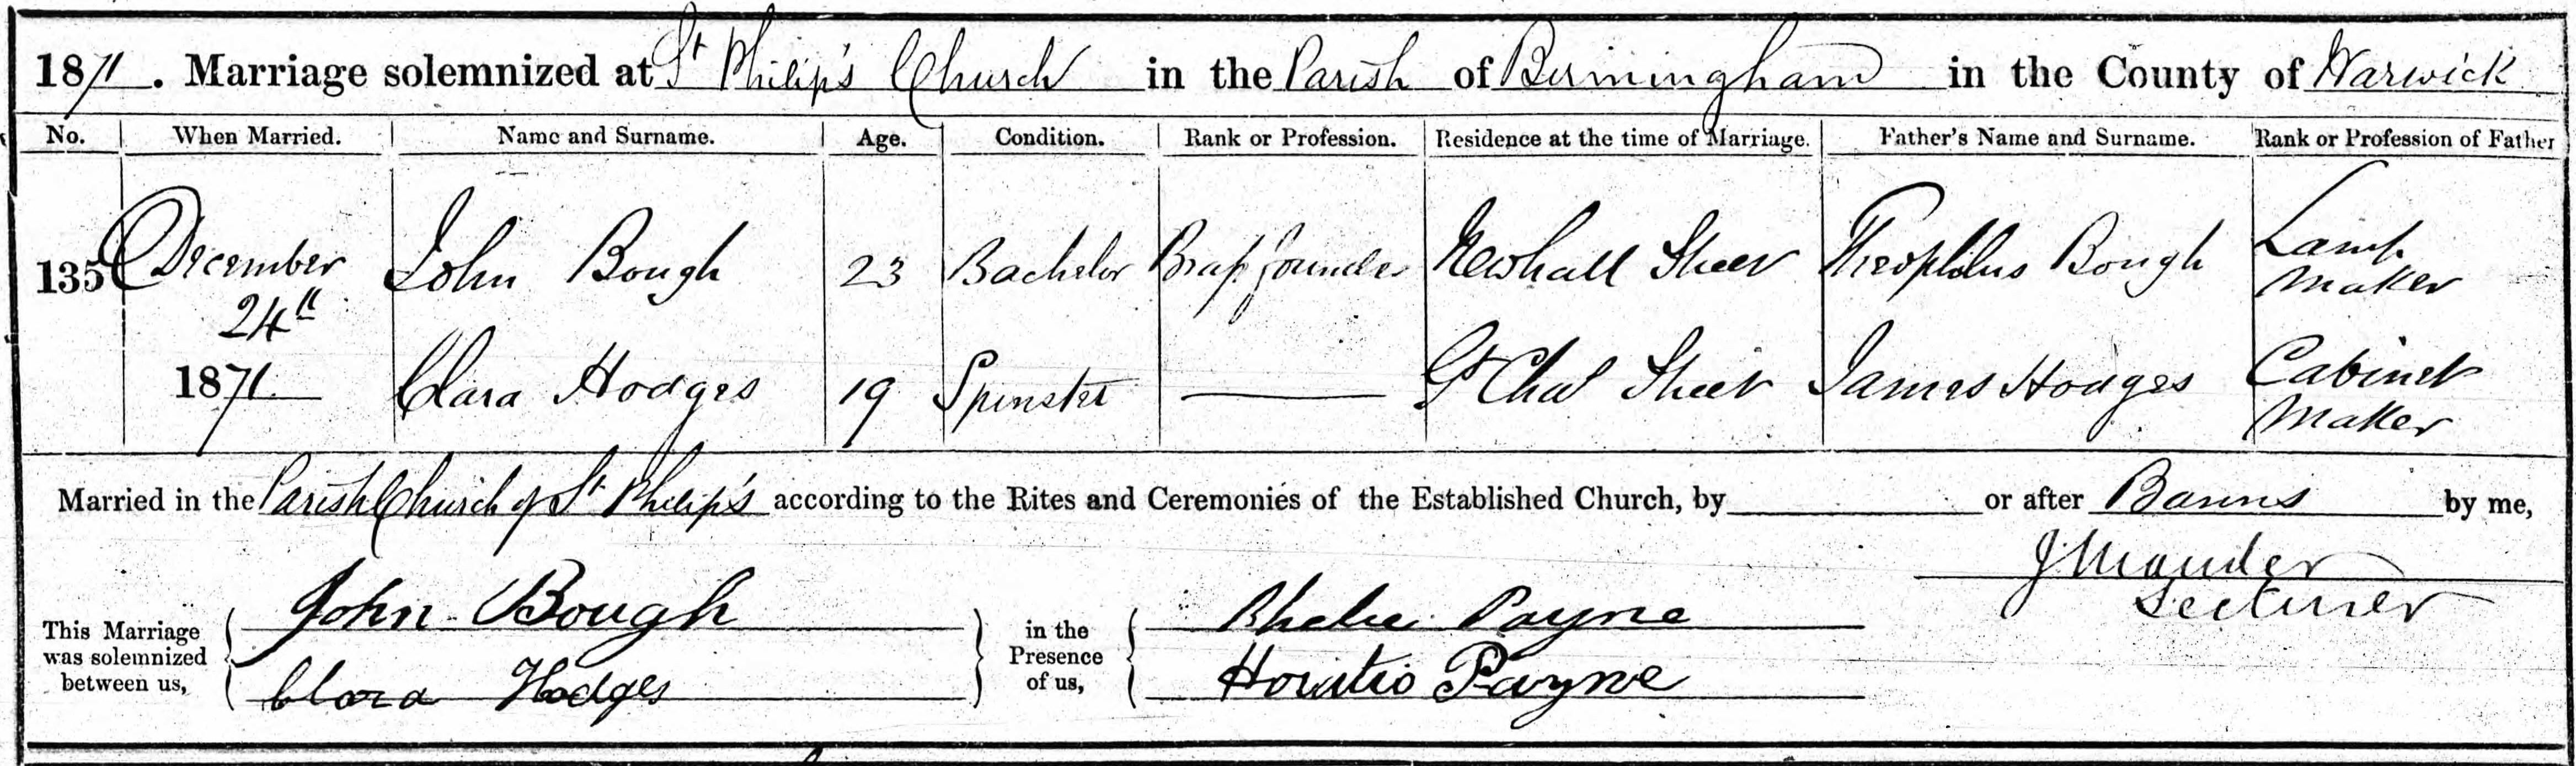 1871. Marriage solemnized at St Philip's Church in the Parish of Birmingham in the County of Warwick
No. When Married. Name and Surname. Age. Condition. Rank or Profession. Residence at the time of Marriage. Father's Name and Surname. Rank or Profession of Father
135 December 24th John Bough 23 Bachelor Brassfounder Newhall Street Theophilus Bough Lamp Maker
1871. Clara Hodges 19 Spinster Street James Hodges Cabinet Maker
Married in the Parish Church of St Philip's according to the Rites and Ceremonies of the Established Church, by or after Banns by me,
Lecturer
This Marriage was solemnized between us, John Bough Clara Hodges in the Presence of us, Payne Horatio Payne